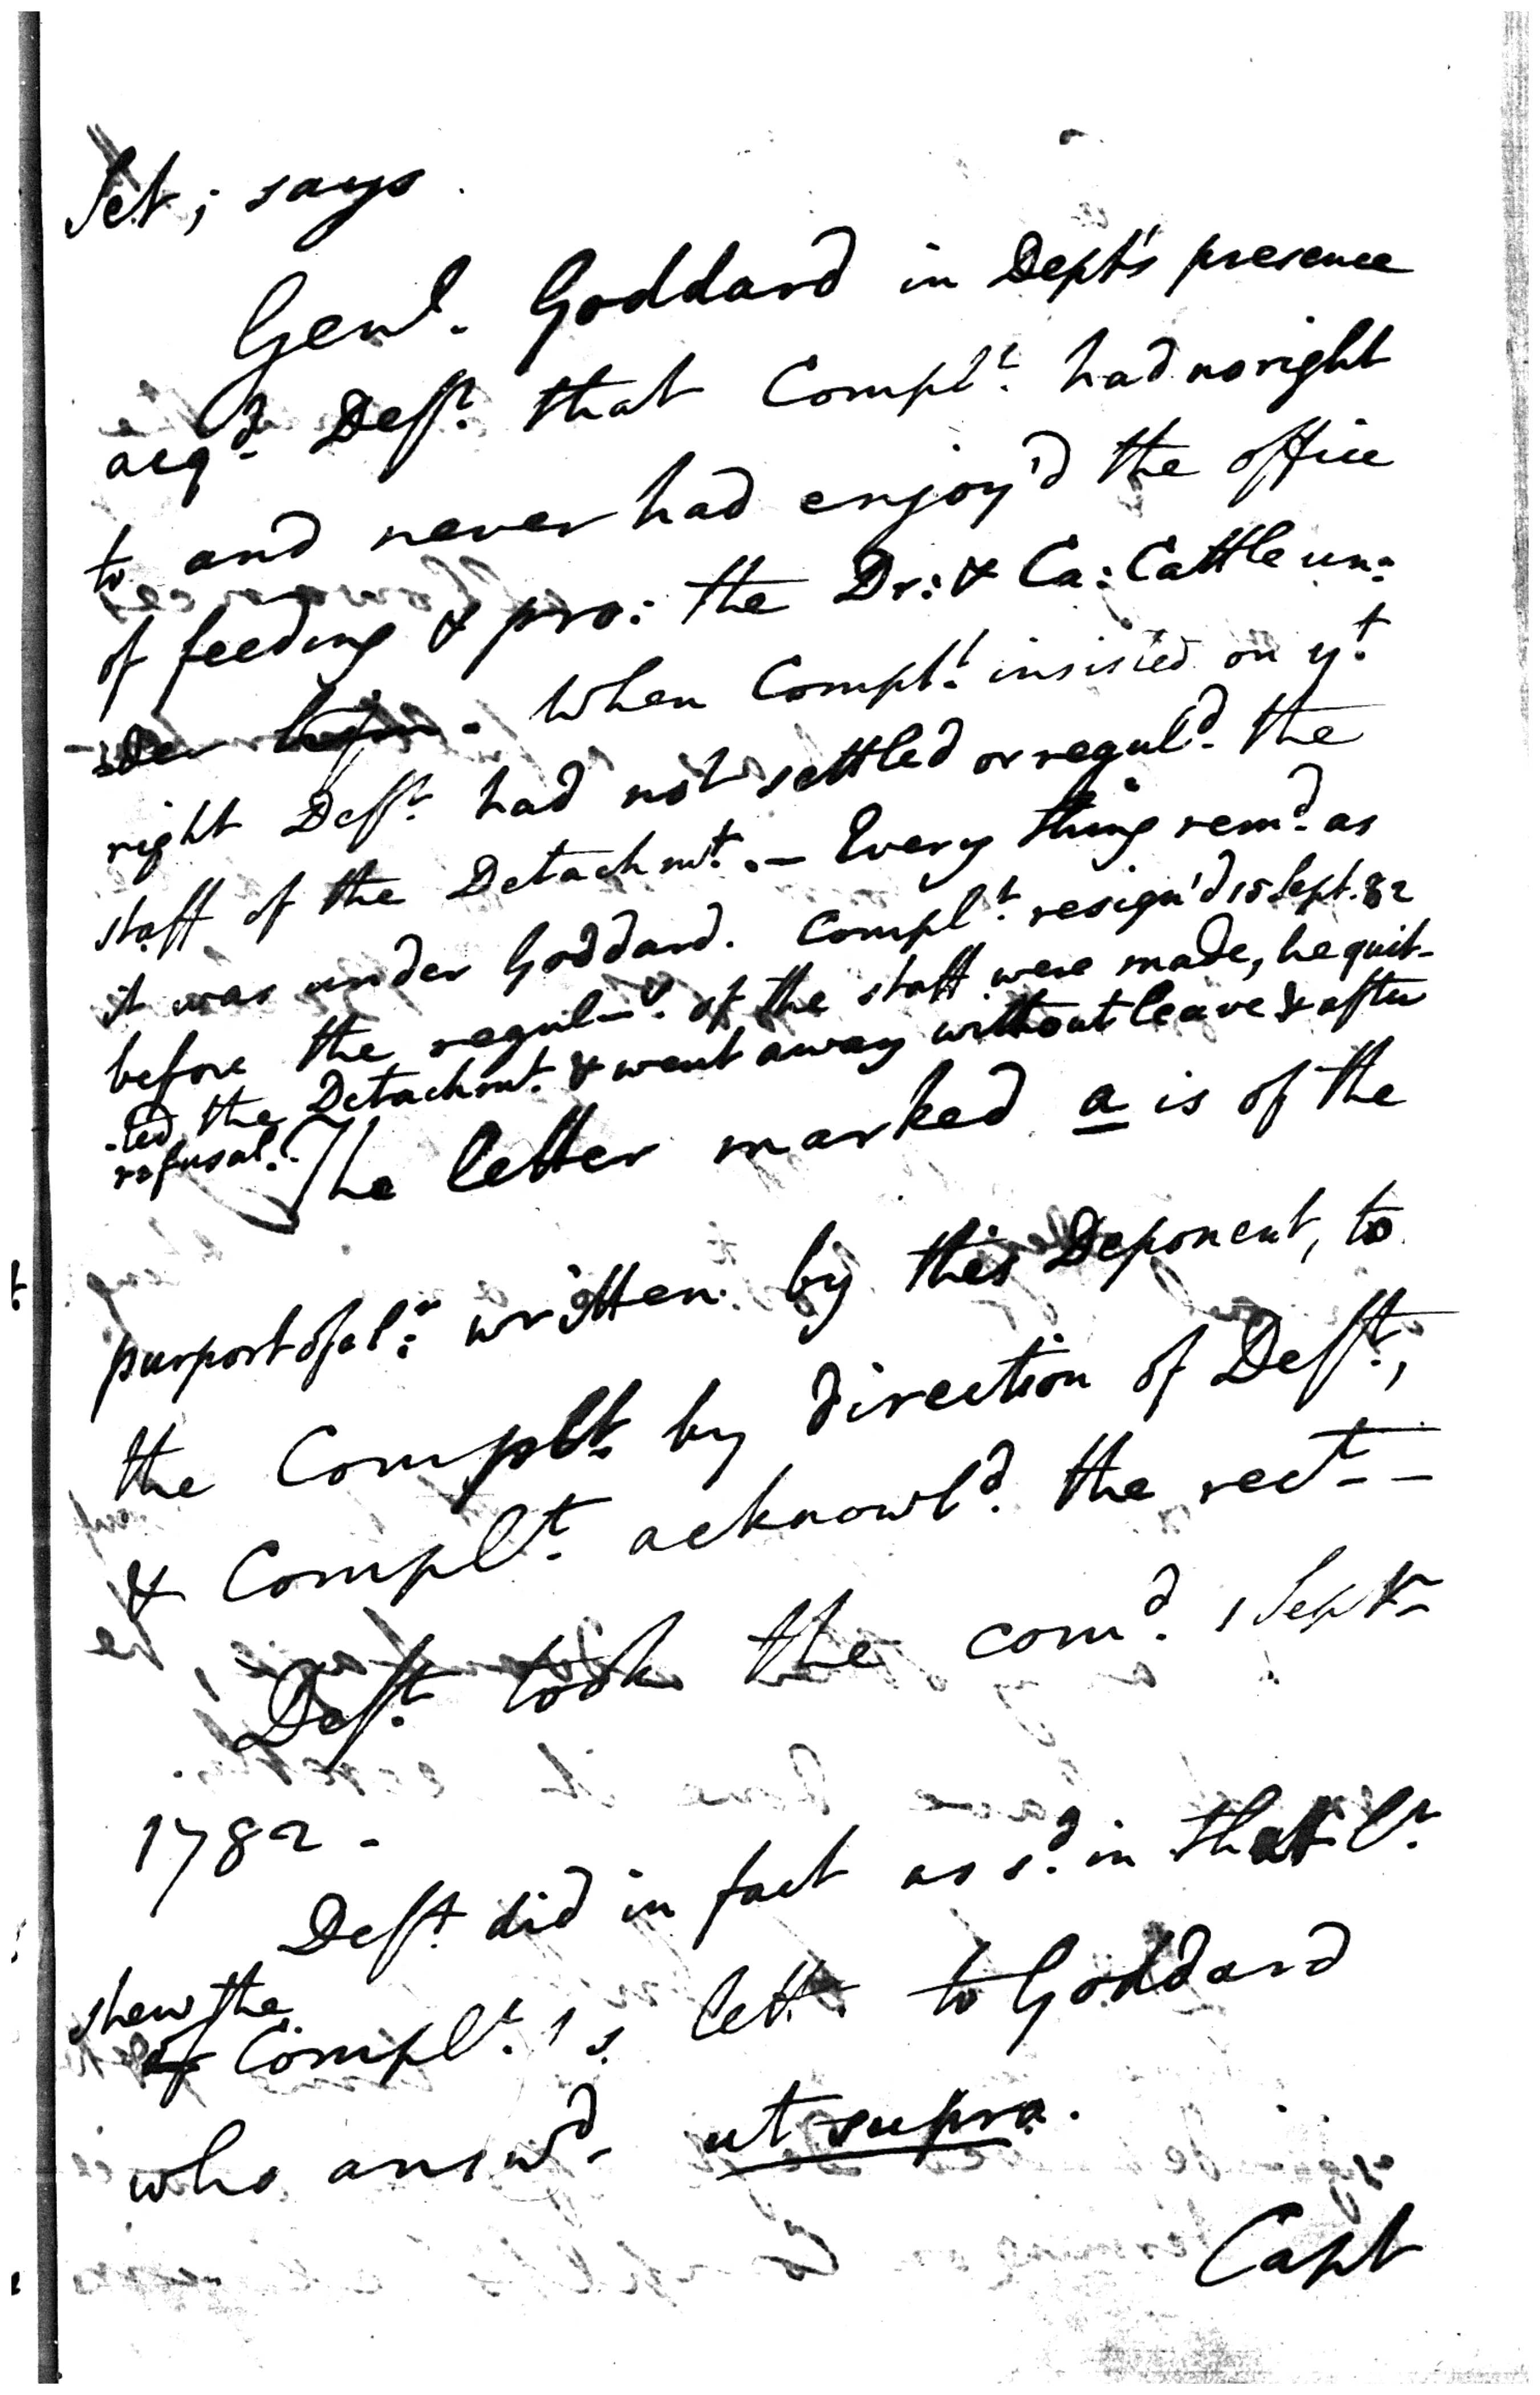 Set; says
Genl. Goddard in Dept's presence
acqd. Deft. that Complt. had no right
to and never had enjoy'd the office
of feeding & pro: the Dr: & Ca: Cattle un:
der him. When Complt. insisted on yt.
right Deft. had not settled or reguld. the
staff of the Detachmt. — Every thing remd. as
it was under Goddard. Complt. resign'd 15 Sept. 82
before the regul—s. of the staff were made, he quit-
-ted the Detachmt. & went away without leave & after
refusal. The letter marked a is of the
purport of a lr: written by this Deponent, to
the Complt. by direction of Deft.,
& Complt. acknowld. the rect - -
Deft. took the comd. 1 Septr
1782 -
Deft. did in fact as sd. in that lr.
shew the
of Complt.'s lettr to Goddard
who answd. ut supra.
Capt